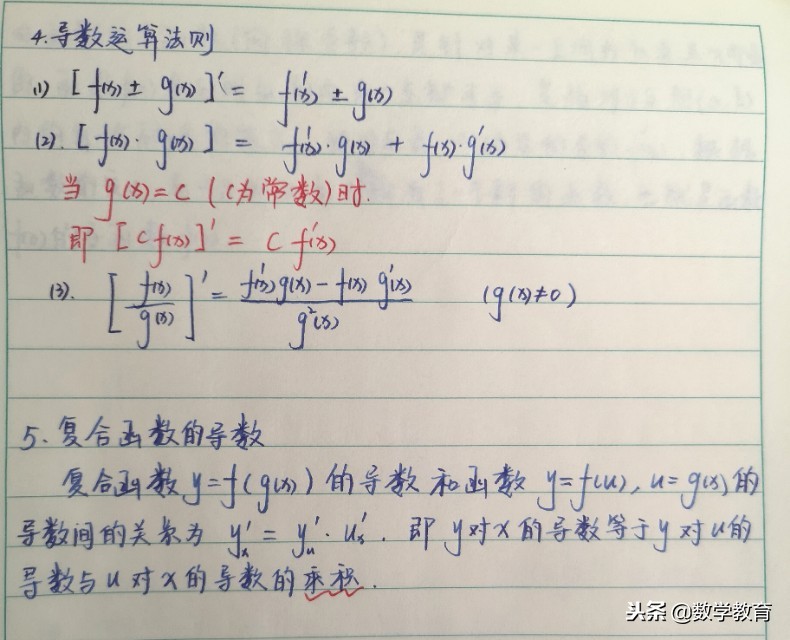 4.导数运算法则
(1) [f(x) ± g(x)]' = f'(x) ± g(x)
(2). [f(x)·g(x)] = f'(x)·g(x) + f(x)·g'(x)
当 g(x)=C (C为常数)时.
即 [Cf(x)]' = Cf'(x)
(3). [f(x)/g(x)]' = (f'(x)g(x) - f(x)g'(x))/g²(x) (g(x)≠0)
5.复合函数的导数
复合函数 y=f(g(x)) 的导数和函数 y=f(u), u=g(x)的
导数间的关系为 y'ₓ = y'ᵤ · u'ₓ. 即 y对x的导数等于y对u的
导数与u对x的导数的乘积.
头条 @数学教育